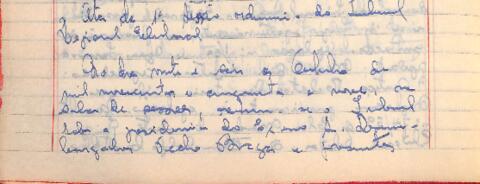 Ata da 1ª sessão ordinária do Tribunal
Regional Eleitoral
Ao dia vinte e seis de Outubro de
mil novecentos e cinquenta e nove, na
sala de sessões, reuniu-se o Tribunal
sob a presidencia do Exmo
Pedro Braga e presentes